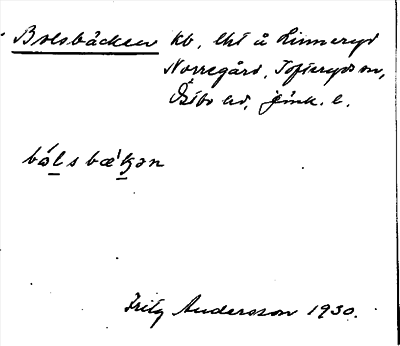 Bolsbäcken kb, thi å Linneryd
Norregård, Tofteryds sn,
Östbo hd, Jönk. l.
bǻlsbæ̀kən
Fritz Andersson 1930.